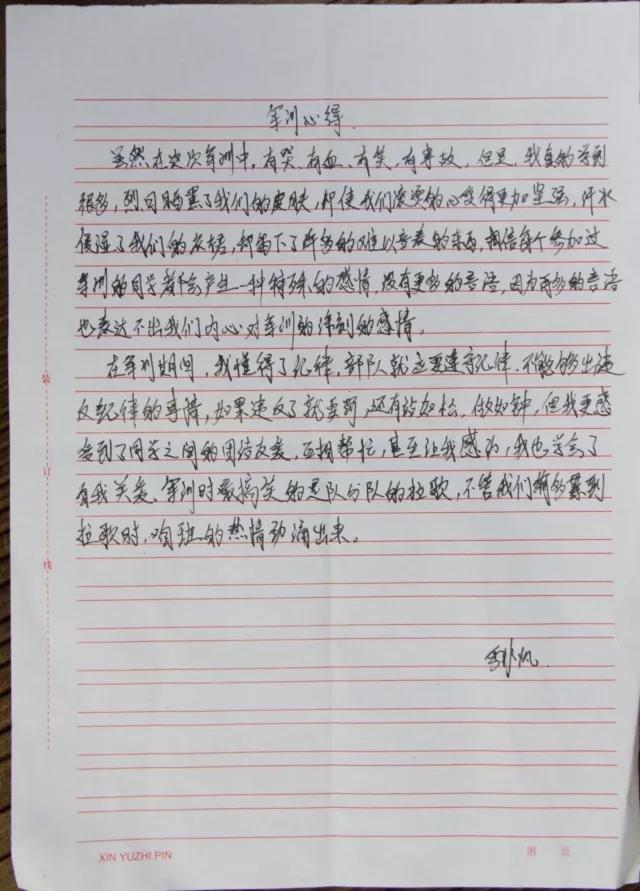 军训心得
虽然在这次军训中,有哭、有血、有笑、有事故,但是,我真的学到
很多,烈日晒黑了我们的皮肤,却使我们凌乱的心变得更加坚强,汗水
浸湿了我们的衣裙,却留下了许多的难以言表的东西,相信每个参加过
军训的同学都会产生一种特殊的感情,没有更多的言语,因为再多的言语
也表达不出我们内心对军训的深刻的感情。
在军训期间,我懂得了纪律,部队就是要遵守纪律,不能够出违
反纪律的事情,如果违反了就要罚,还有站如松,坐如钟,但我更感
受到了同学之间的团结友爱,互相帮忙,甚至让我感动,我也学会了
自我关爱、军训时最搞笑的是队与队的拉歌,不管我们有多累到
拉歌时,咱班的热情动涌出来。
装
订
线
XIN YUZHI PIN
第 页